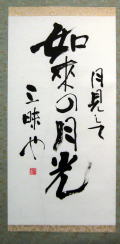 月見して
如來の月光
三昧や